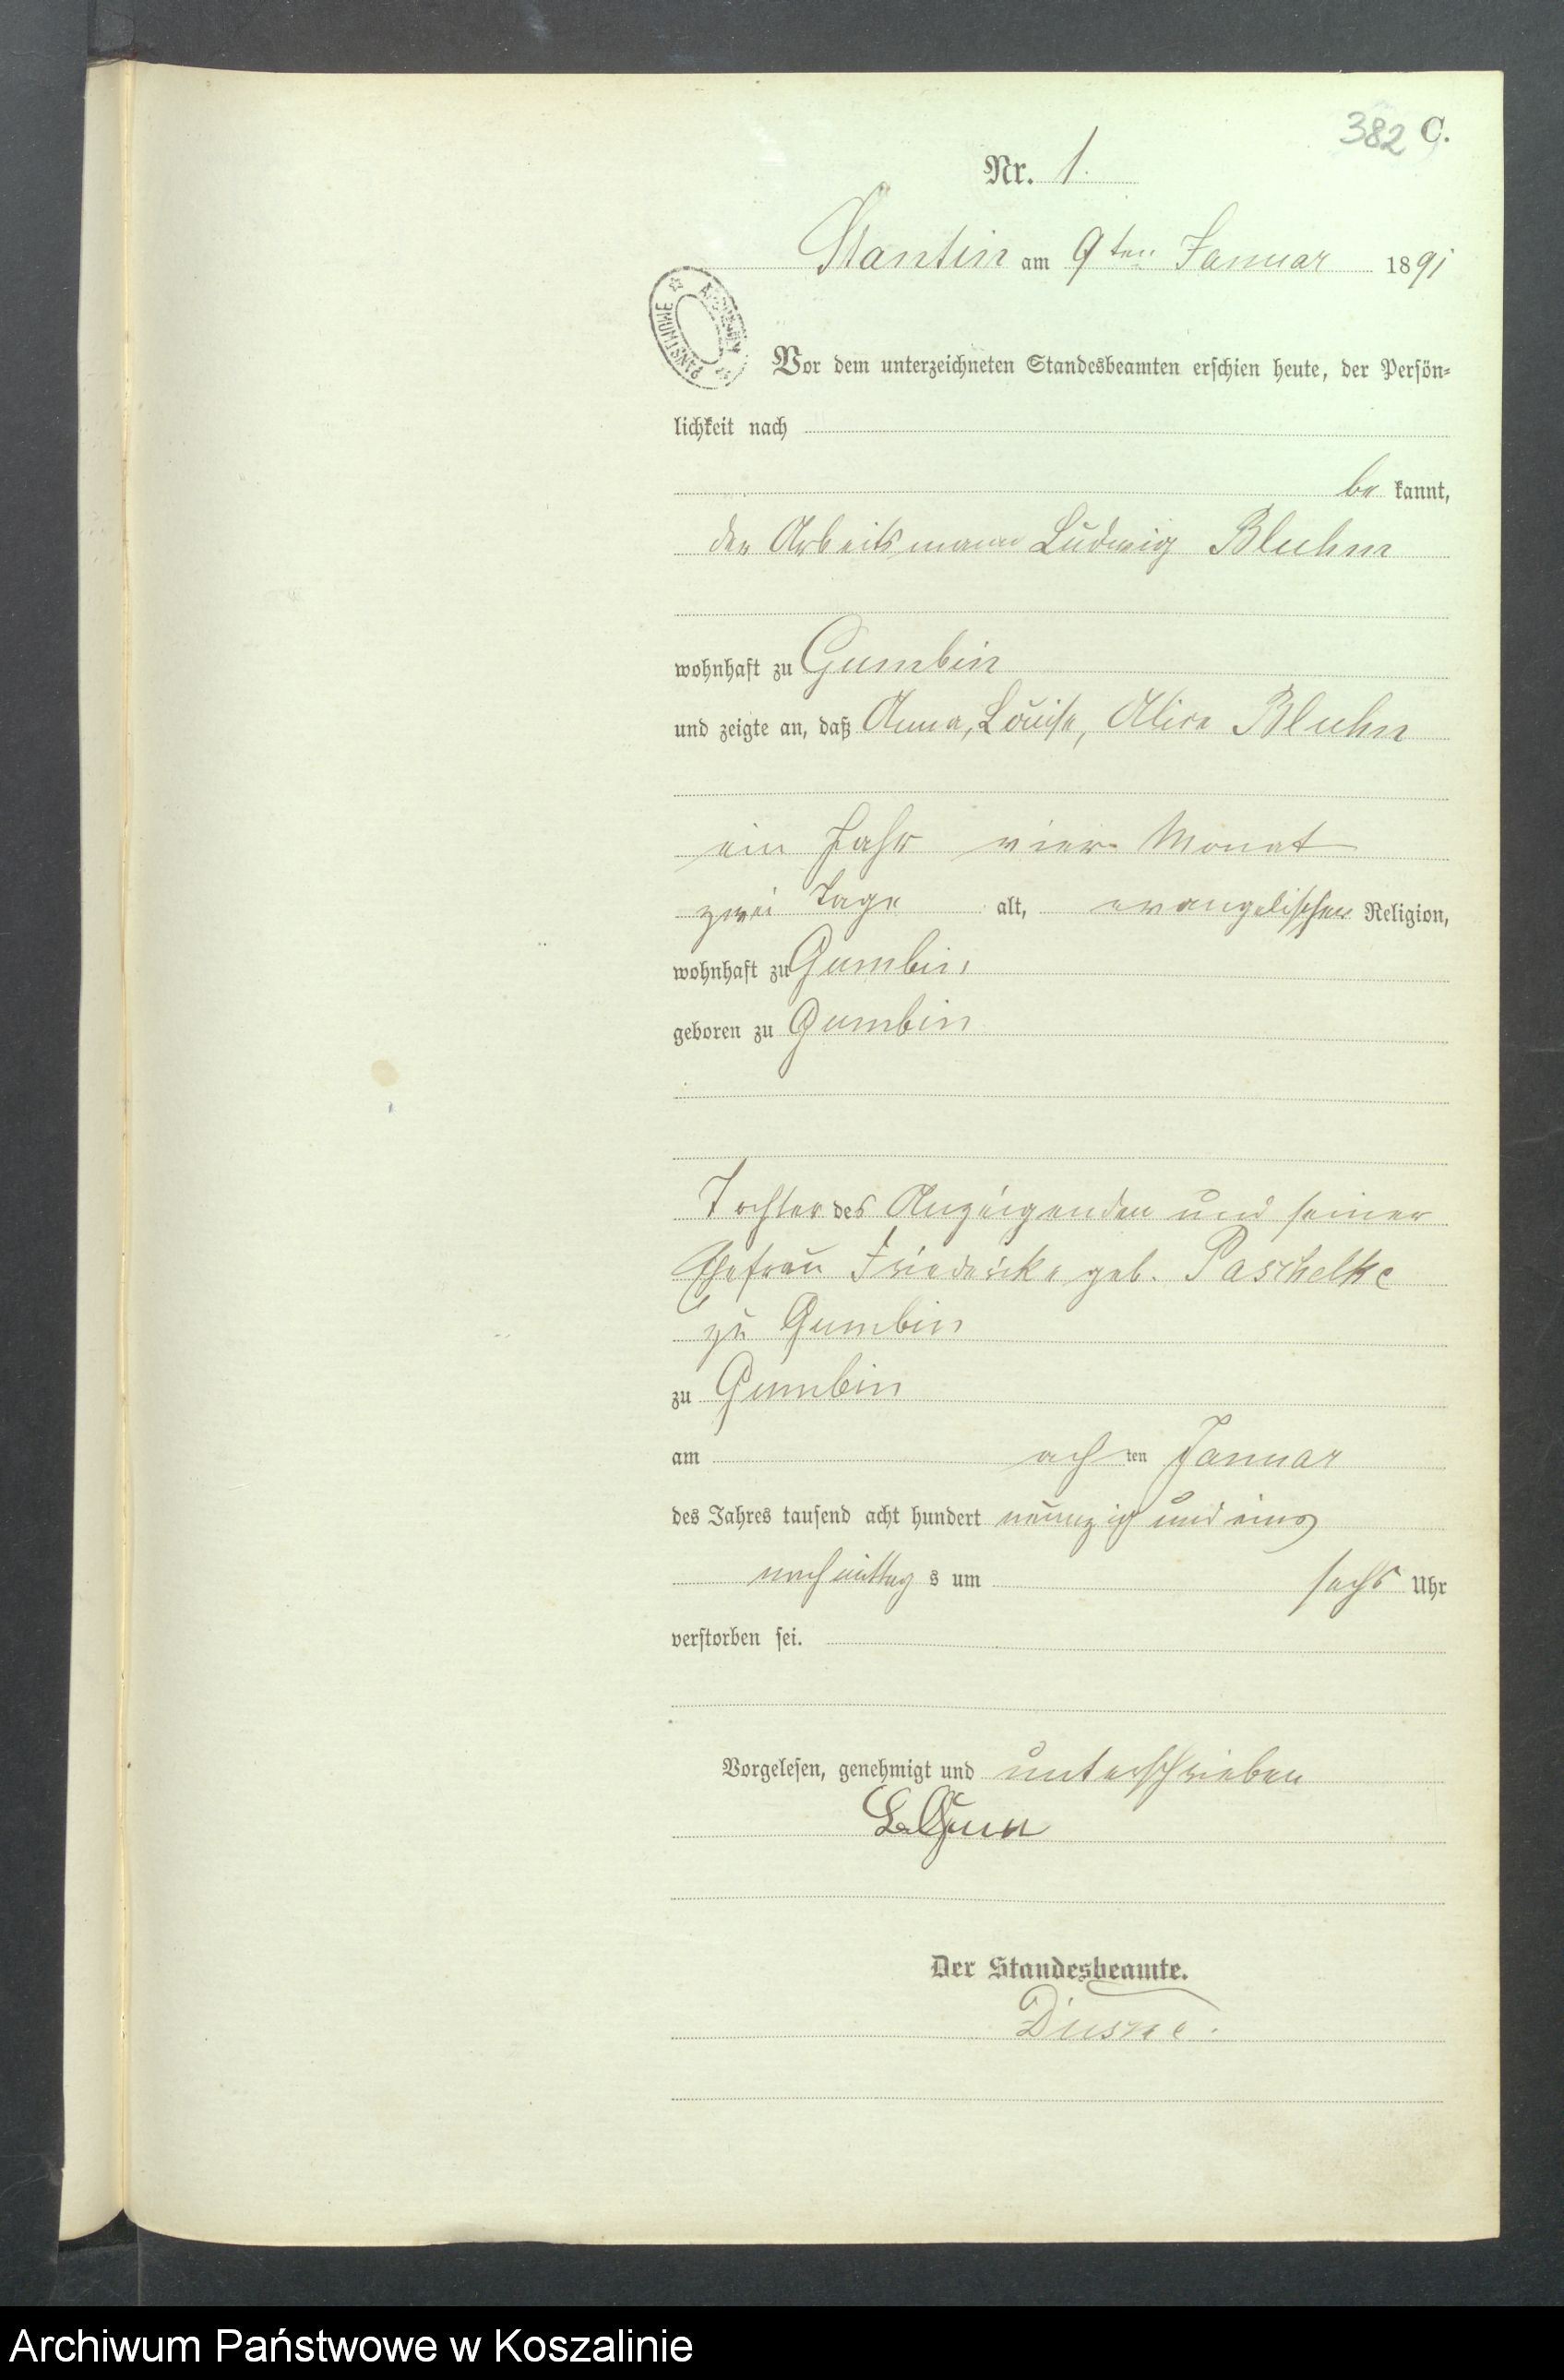 382 C.
Nr. 1.
Stantin am 9ten Januar 1891
ARCHIWUM PAŃSTWOWE
Vor dem unterzeichneten Standesbeamten erschien heute, der Persön-
lichkeit nach
be kannt,
der Arbeitsmann Ludwig Bluhm
wohnhaft zu Gumbin
und zeigte an, daß Anna, Louise, Alire Bluhm
ein Jahr vier Monat
zwei Tage alt, evangelischer Religion,
wohnhaft zu Gumbin,
geboren zu Gumbin
Tochter des Anzeigenden und seiner
Ehefrau Friedericke geb. Paschelke
zu Gumbin
zu Gumbin
am achten Januar
des Jahres tausend acht hundert neunzig und eins
nachmittag s um sechs Uhr
verstorben sei.
Vorgelesen, genehmigt und unterschrieben
Der Standesbeamte.
Archiwum Państwowe w Koszalinie